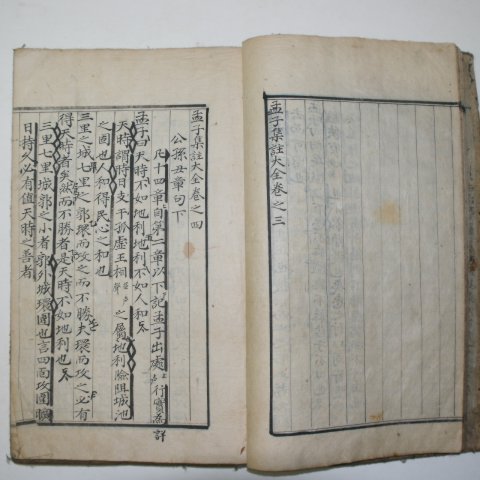 孟子集註大全卷之三
孟子集註大全卷之四
公孫丑章句下
凡十四章自第二章以下記孟子出處行實爲詳
孟子曰天時不如地利地利不如人和
天時謂時日支干孤虛王相之屬地利險阻城池
之固也人和得民心之和也
三里之城七里之郭環而攻之而不勝夫環而攻之必有
得天時者矣然而不勝者是天時不如地利也
三里七里城郭之小者郭外城環圍也言四面攻圍
日持久必有值天時之善者